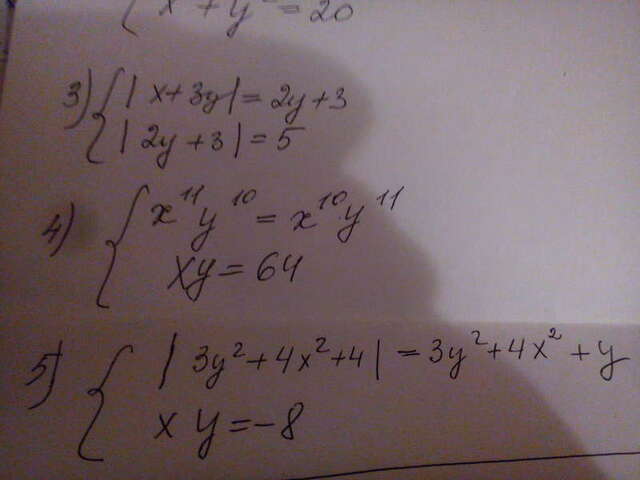 { x + y² = 20
3) { |x+3y| = 2y+3
|2y+3| = 5
4) { x¹¹y¹⁰ = x¹⁰y¹¹
xy = 64
5) { |3y²+4x²+4| = 3y²+4x²+y
xy = -8